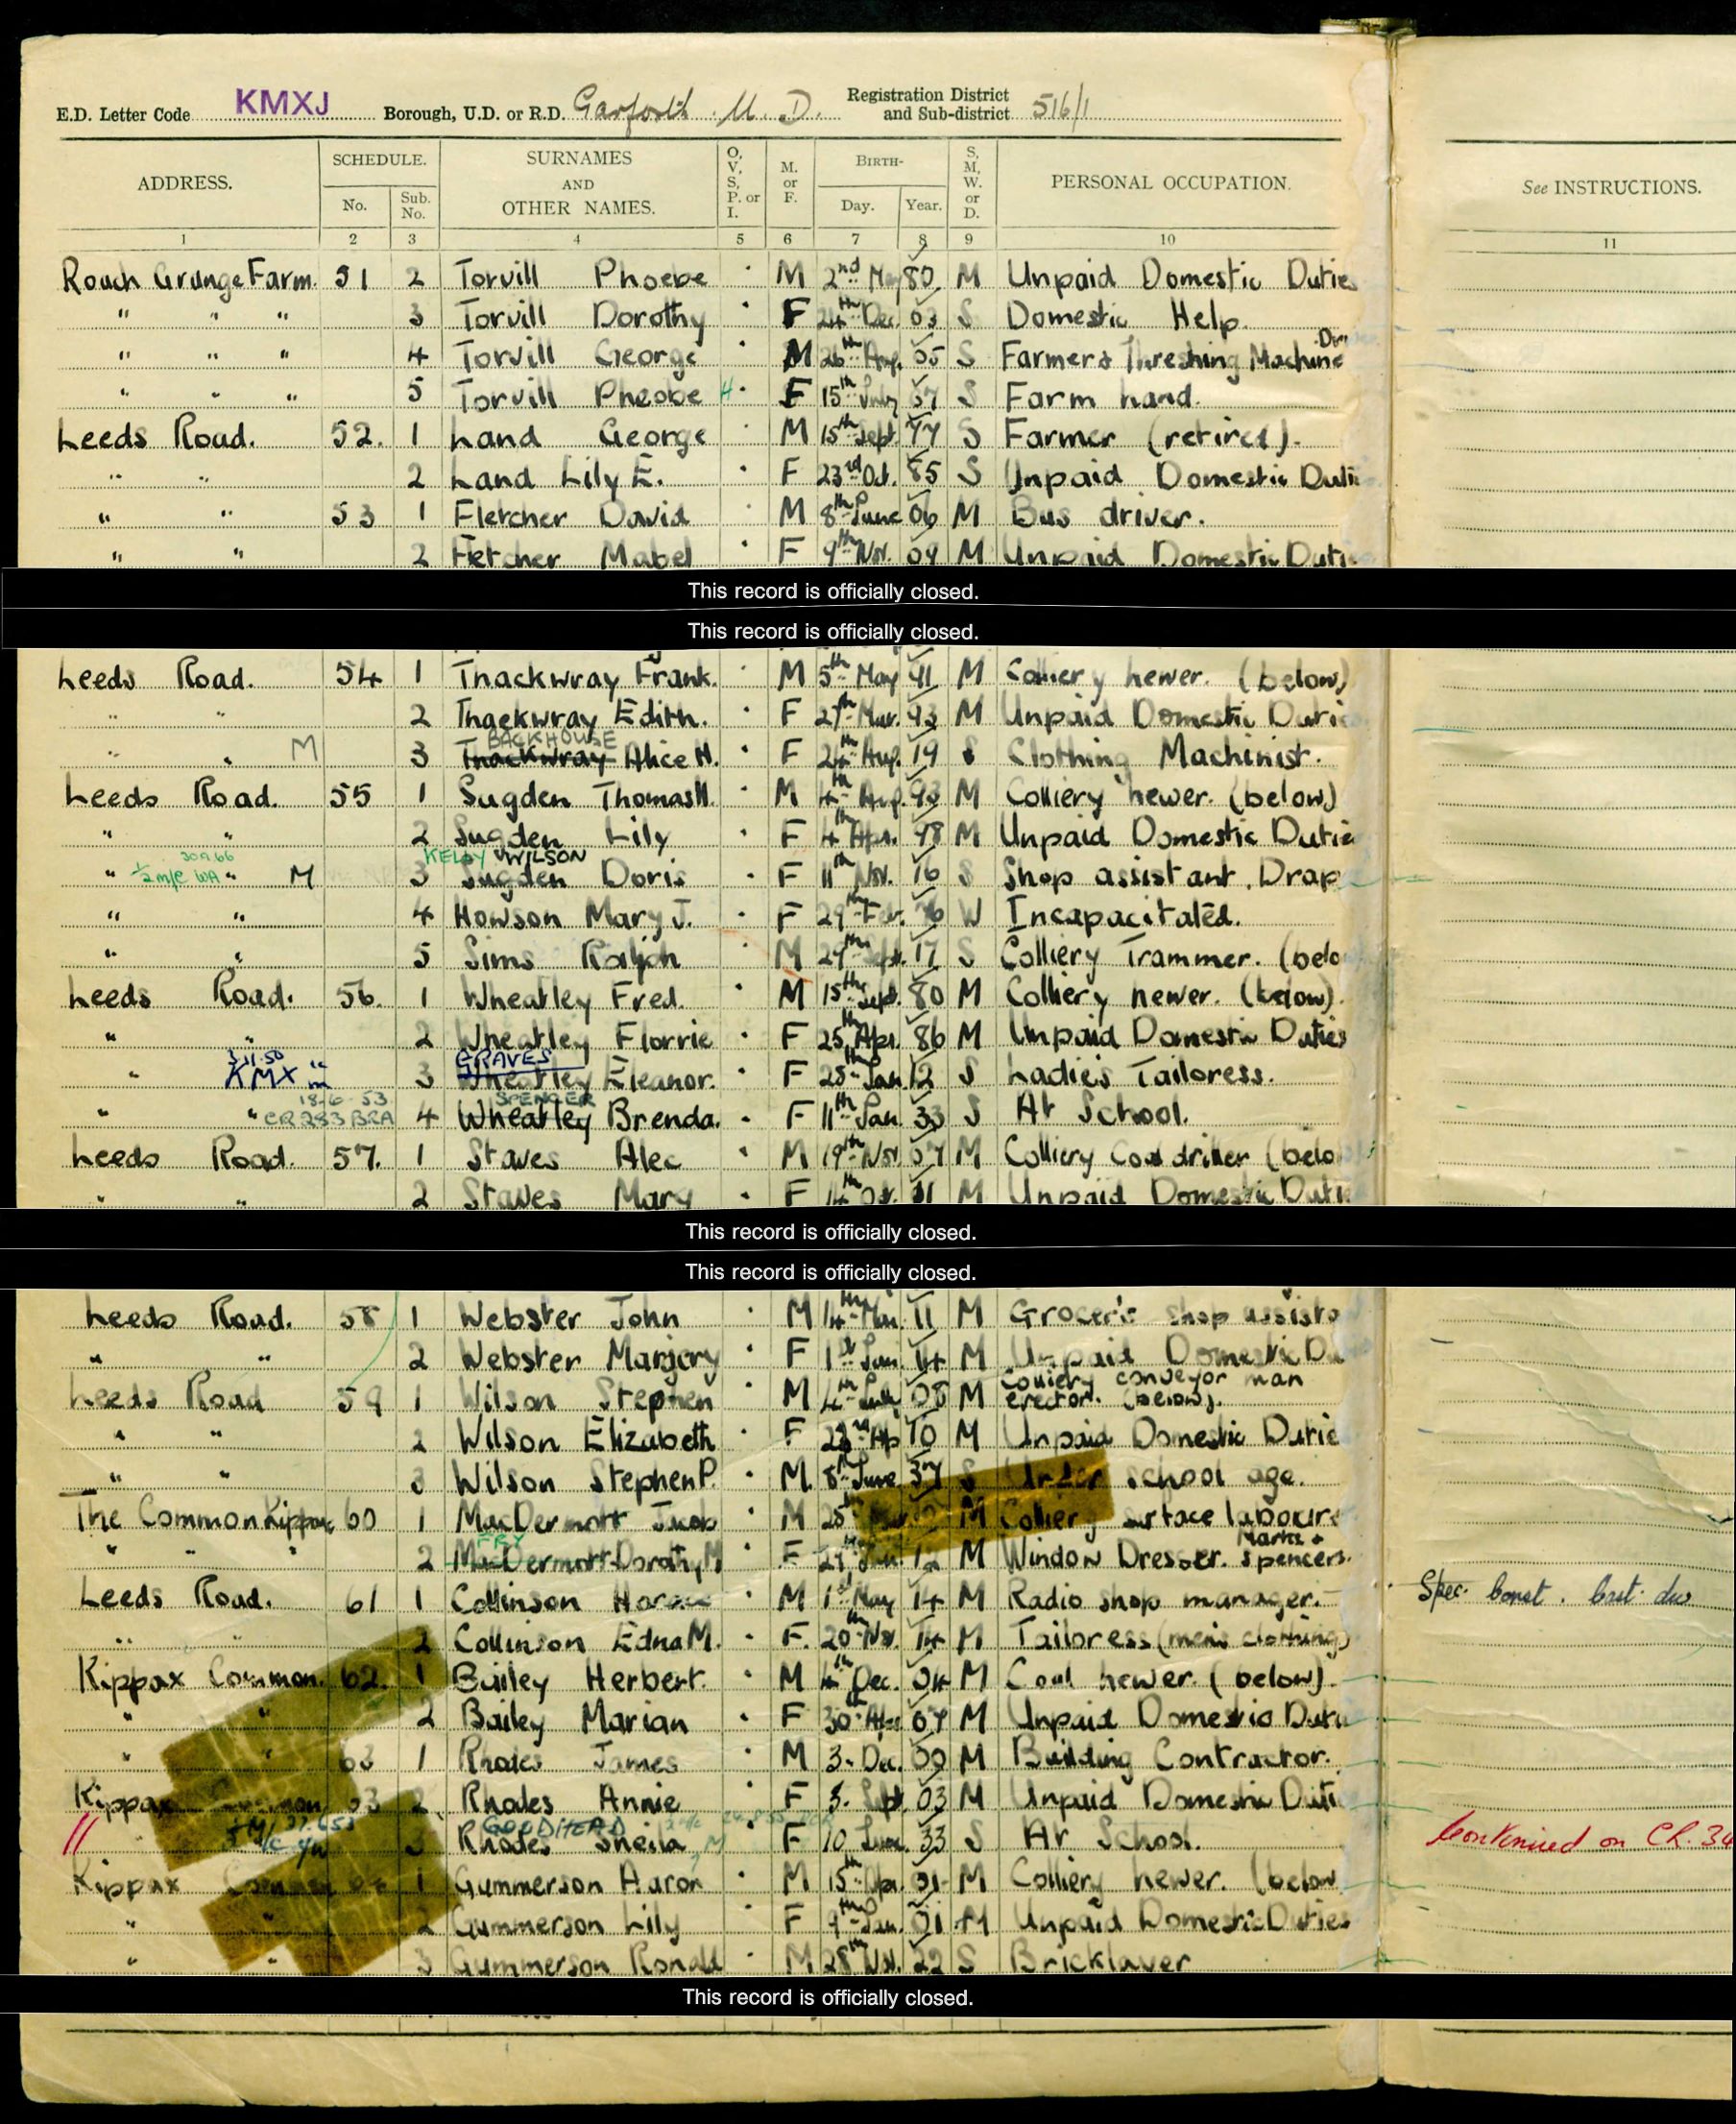 E.D. Letter Code KMXJ Borough, U.D. or R.D. Garforth U. D. Registration District and Sub-district 516/1
ADDRESS. SCHEDULE. No. Sub. No. SURNAMES AND OTHER NAMES. O, V, S, P. or I. M. or F. BIRTH- Day. Year. S, M, W. or D. PERSONAL OCCUPATION. See INSTRUCTIONS.
1 2 3 4 5 6 7 8 9 10 11
Farm. 51 2 Torvill Phoebe M 2nd May 80 M Unpaid Domestic Duties
" " " 3 Torvill Dorothy F 24th Dec. 03 S Domestic Help.
" " " 4 Torvill George M 26th Aug. 05 S Farmers Threshing Machine
" " " 5 Torvill Pheobe H F 15th July 07 S Farm hand.
Leeds Road. 52. 1 Land George M 15th Sept. 77 S Farmer (retired).
" " 2 Land Lily E. F 23rd Oct. 85 S Unpaid Domestic Duti
" " 53 1 Fletcher David M 8th June 06 M Bus driver.
" " 2 Fletcher Mabel F 9th Nov. 09 M Unpaid Domestic Duti
This record is officially closed.
This record is officially closed.
Leeds Road. 54 1 Thackwray Frank. M 5th May 91 M Colliery hewer. (below)
" " 2 Thackwray Edith. F 27th Mar. 93 M Unpaid Domestic Dutie
BACKHOUSE
" " M 3 Thackwray Alice H. F 24th Aug. 19 S Clothing Machinist.
Leeds Road. 55 1 Sugden Thomas H. M 4th Aug. 93 M Colliery hewer. (below)
" " 2 Sugden Lily F 4th Apr. 98 M Unpaid Domestic Dutie
30.9.66 KELLY WILSON
" 1/2 m/c WA " M 3 Sugden Doris F 11th Nov. 16 S Shop assistant. Drap
" " 4 Howson Mary J. F 29th Feb. W Incapacitated.
" " 5 Sims Ralph M 29th Sept. 17 S Colliery Trammer. (belo
Leeds Road. 56. 1 Wheatley Fred. M 15th Sept. 80 M Colliery hewer. (below).
" " 2 Wheatley Florrie F 25th Apr. 86 M Unpaid Domestic Duties
3.11.50 GRAVES
" KMX 3 Wheatley Eleanor. F 28th Jan. 12 S Ladies Tailoress.
18.6.53 SPENCER
" " CR283 BRA 4 Wheatley Brenda. F 11th Jan. 33 S At School.
Leeds Road. 57. 1 Staves Alec M 19th Nov. 07 M Colliery Coal driller (belo
" " 2 Staves Mary F 14th Oct. 11 M Unpaid Domestic Duti
This record is officially closed.
This record is officially closed.
Leeds Road. 58 1 Webster John M 14th Mar. 11 M Grocer's shop assista
" " 2 Webster Marjory F 1st Jan. 14 M Unpaid Domestic Du
Leeds Road 59 1 Wilson Stephen M 4th July 08 M Colliery conveyor man erector. (below).
" " 2 Wilson Elizabeth F 23rd Ap 10 M Unpaid Domestic Dutie
" " 3 Wilson Stephen P. M. 8th June 37 S Under School age.
The Common Kippax 60 1 MacDermott Jacob M 28th M Colliery surface laboure
FRY Marks &
" " " 2 MacDermott Dorothy M F 29th Jan. 12 M Window Dresser. Spencers.
Leeds Road. 61 1 Collinson Horace M 1st May 14 M Radio shop manager. Spec. Const.
" " 2 Collinson Edna M. F. 20th Nov. 14 M Tailoress (men's clothing)
Kippax Common. 62. 1 Bailey Herbert. M 4th Dec. 04 M Coal hewer. (below).
" " 2 Bailey Marian F 30th 07 M Unpaid Domestic Duti
" " 63 1 Rhodes James M 3. Dec. 00 M Building Contractor.
Kippax Common 63 2 Rhodes Annie F 3. Sept. 03 M Unpaid Domestic Duti
GOODHEAD
" 3 Rhodes Sheila M F 10 June. 33 S At School. Continued on CR. 34
Kippax Common 1 Gummerson Aaron M 15th Apr. 01 M Colliery hewer. (below
" " 2 Gummerson Lily F 9th Jan. 01 M Unpaid Domestic Duties
" " 3 Gummerson Ronald M 28th Nov. 22 S Bricklayer
This record is officially closed.